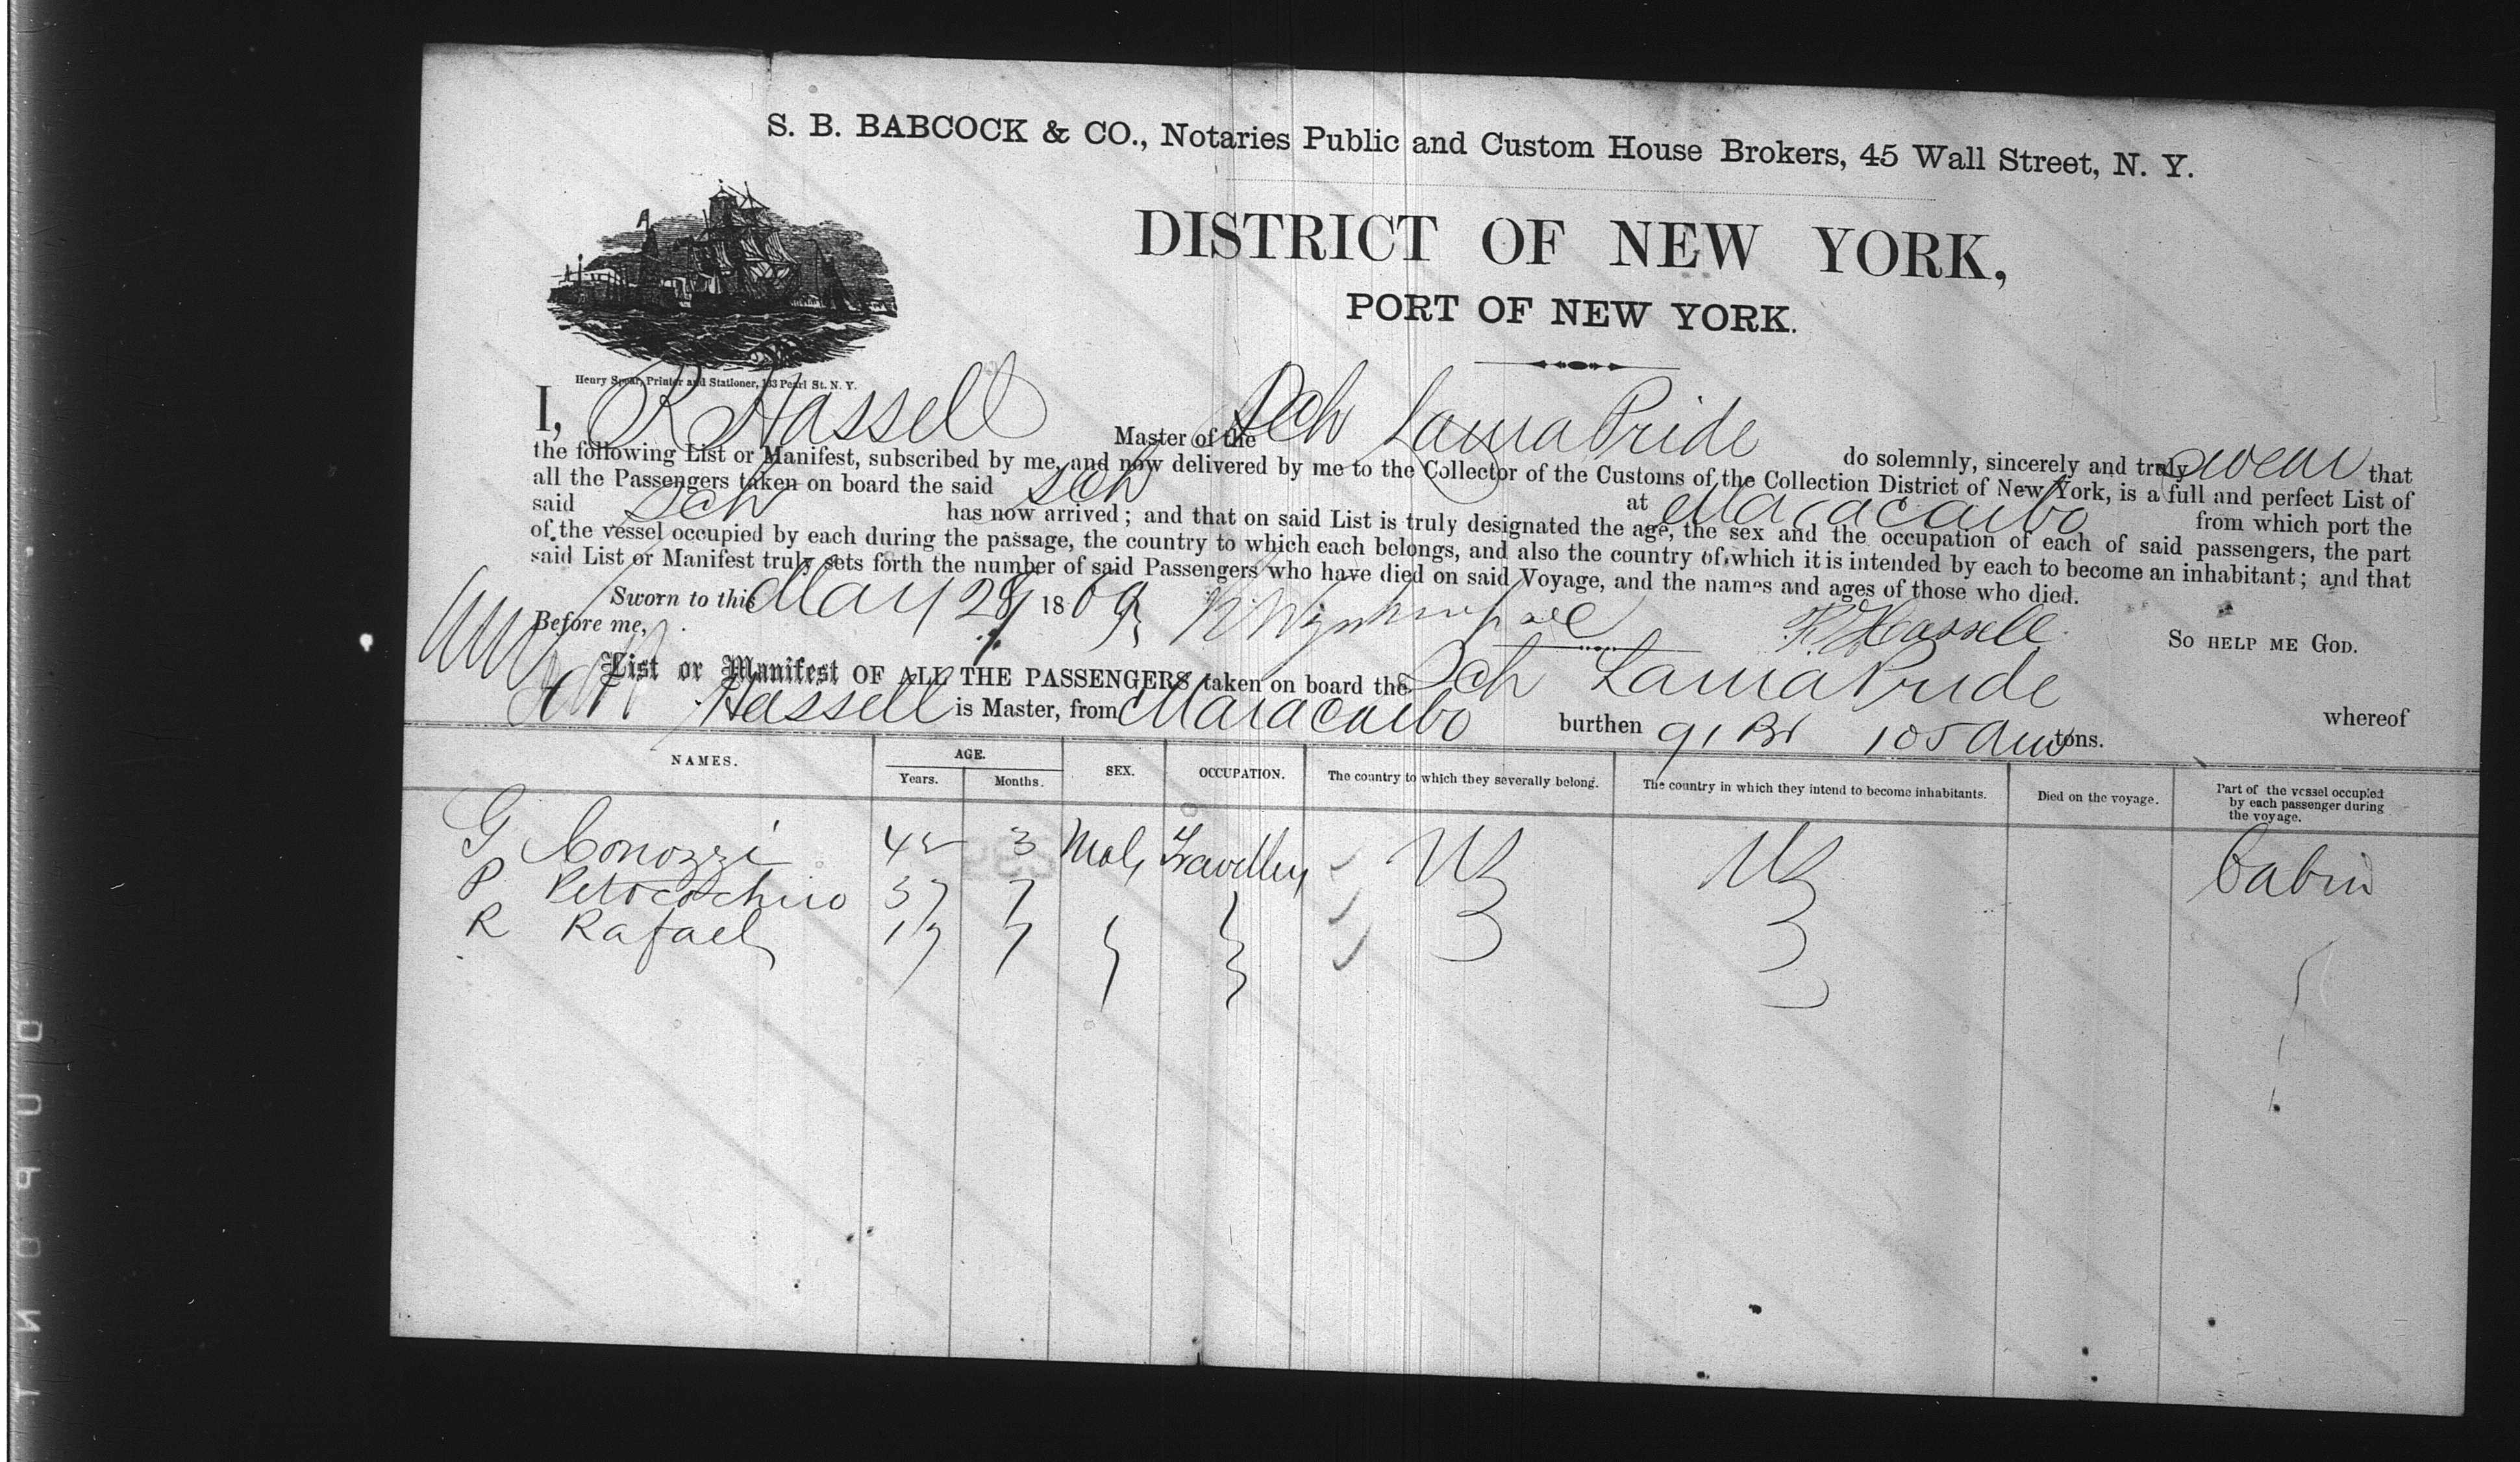 S. B. BABCOCK & CO., Notaries Public and Custom House Brokers, 45 Wall Street, N. Y.
DISTRICT OF NEW YORK,
PORT OF NEW YORK.
Henry Spear, Printer and Stationer, 133 Pearl St. N. Y.
I, R Hassell Master of the Sch Laura Pride do solemnly, sincerely and truly swear that
the following List or Manifest, subscribed by me, and now delivered by me to the Collector of the Customs of the Collection District of New York, is a full and perfect List of
all the Passengers taken on board the said Sch at Maracaibo from which port the
said Sch has now arrived; and that on said List is truly designated the age, the sex and the occupation of each of said passengers, the part
of the vessel occupied by each during the passage, the country to which each belongs, and also the country of which it is intended by each to become an inhabitant; and that
said List or Manifest truly sets forth the number of said Passengers who have died on said Voyage, and the names and ages of those who died.
Sworn to this May 28 1869 R. Hassell SO HELP ME GOD.
Before me,
List or Manifest OF ALL THE PASSENGERS taken on board the Sch Laura Pride whereof
R Hassell is Master, from Maracaibo burthen 91 Br 105 Am tons.
NAMES. AGE. SEX. OCCUPATION. The country to which they severally belong. The country in which they intend to become inhabitants. Died on the voyage. Part of the vessel occupied by each passenger during the voyage.
Years. Months.
G Conozzi 45 3 Male US US Cabin
P 37 7
R Rafael 17 7
DUPONT